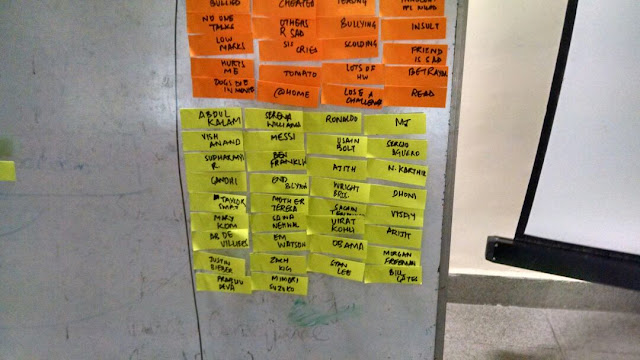 BULLIED
CHEATED
NO ONE
TALKS
OTHERS
R SAD
BULLYING
INSULT
LOW
MARKS
SIS
CRIED
SCOLDING
FRIEND
IS SAD
HURTS
ME
TOMATO
LOTS OF
HW
BETRAYAL
DOGS DIE
IN MOVIES
@HOME
LOSE A
CHALLENGE
READ
ABDUL
KALAM
SERENA
WILLIAMS
RONALDO
MJ
VISH
ANAND
MESSI
USAIN
BOLT
SERGIO
AGUERO
SUDHARMY
R
BEN
FRANKLIN
AJITH
N. KARTHIK
GANDHI
ENID
BLYTON
WRIGHT
BROS.
DHONI
TAYLOR
SWIFT
MOTHER
TERESA
SACHIN
VIJAY
MARY
KOM
SAINA
NEHWAL
VIRAT
KOHLI
ARIJIT
AB DE
VILLIERS
EM
WATSON
OBAMA
MORGAN
FREEMAN
JUSTIN
BIEBER
ZACH
KING
STAN
LEE
BILL
GATES
PRABHU
DEVA
MINORI
SUZUKI